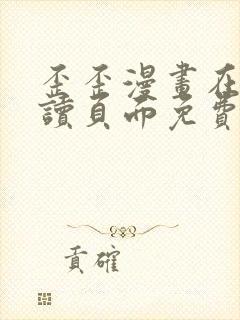 歪歪漫畫在
讀頁面免費
貢確